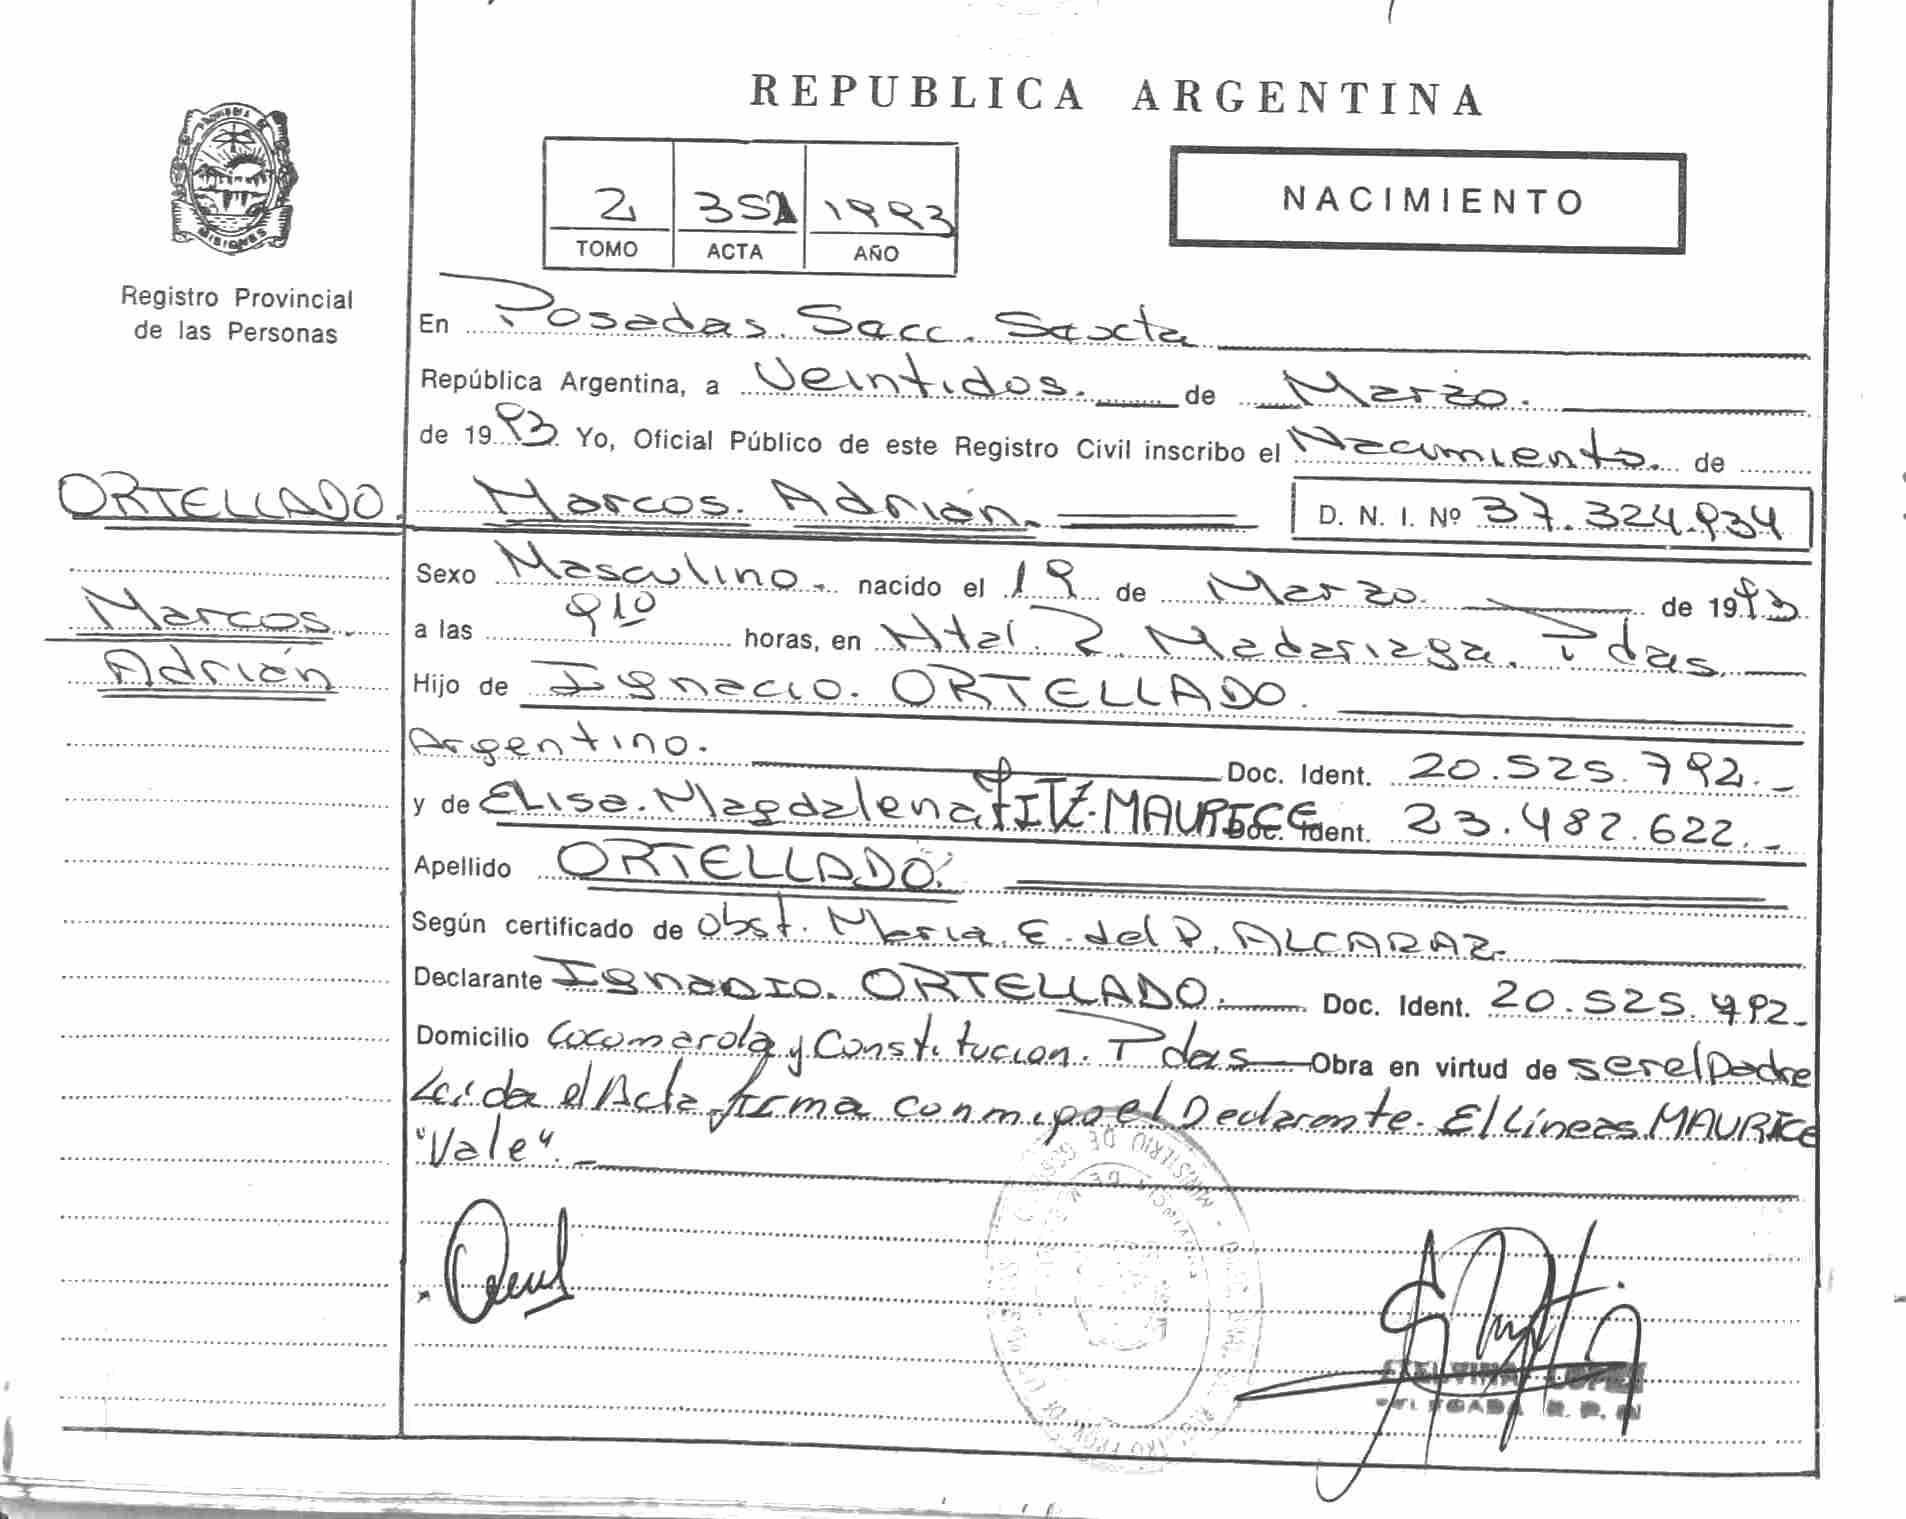 REPUBLICA ARGENTINA
PROVINCIA DE
MISIONES
Registro Provincial
de las Personas
2 351 1993
TOMO ACTA AÑO
NACIMIENTO
En Posadas. Secc. Sexta
República Argentina, a Veintidos. de Marzo.
de 1993. Yo, Oficial Público de este Registro Civil inscribo el Nacimiento. de
ORTELLADO. Marcos. Adrián. D. N. I. Nº 37.324.934
Sexo Masculino. nacido el 19 de Marzo. de 1993.
Marcos. a las 9 10 horas, en Htal. R. Madariaga. Pdas.
Adrián Hijo de Ignacio. ORTELLADO.
Argentino. Doc. Ident. 20.525.792.-
y de Elisa. Magdalena FITZ-MAURICE Doc. Ident. 23.482.622.-
Apellido ORTELLADO.
Según certificado de Obst. Maria. E. del P. ALCARAZ.
Declarante Ignacio. ORTELLADO. Doc. Ident. 20.525.792.-
Domicilio Cocomarola y Constitucion. Pdas Obra en virtud de ser el Padre
Leida el Acta firma conmigo el Declarante. E/Lineas MAURICE
"Vale". -
MINISTERIO DE
LOPEZ
DELEGADA R. P.